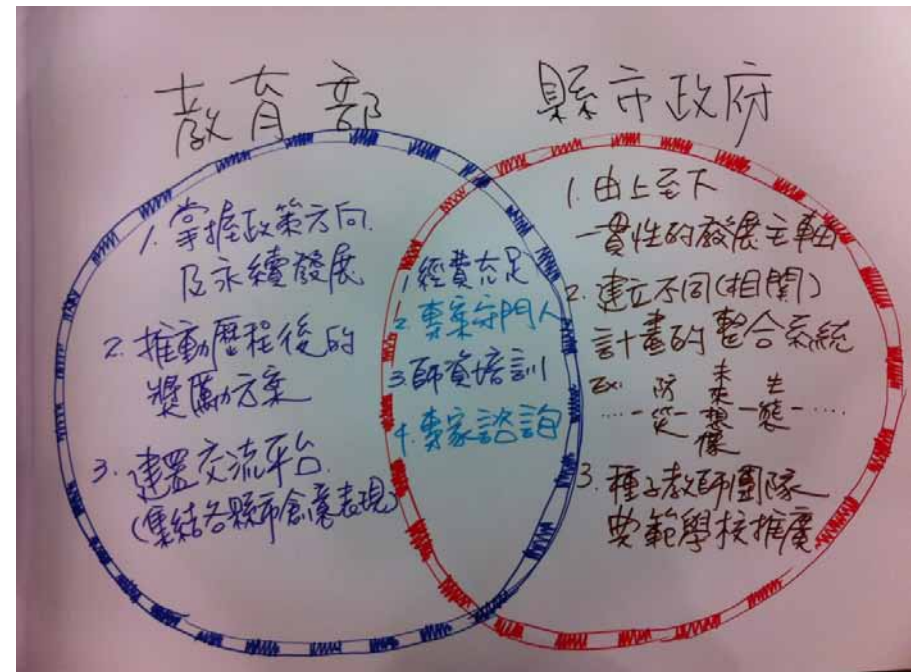 教育部
1. 掌握政策方向
及永續發展
2. 推動歷程後的
獎勵方案
3. 建置交流平台
(集結各縣市創意表現)
1. 經費充足
2. 專案守門人
3. 師資培訓
4. 專家諮詢
縣市政府
1. 由上至下
一貫性的發展主軸
2. 建立不同(相關)
計畫的整合系統
Ex: 防災 — 未來想像 — 生態 — ……
3. 種子教師團隊
典範學校推廣